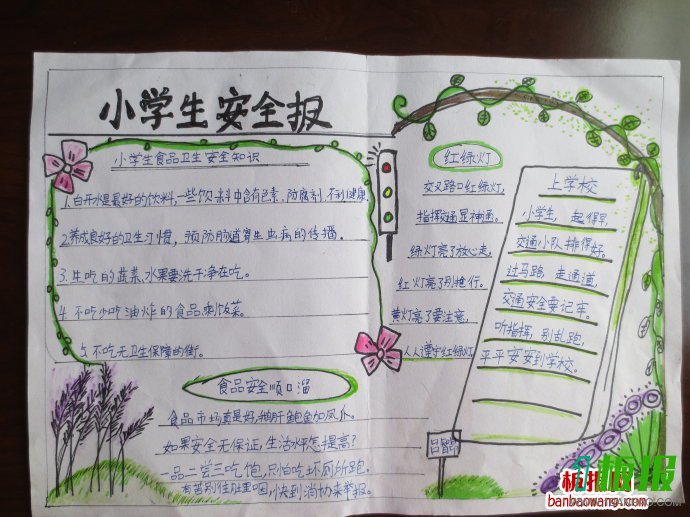 小学生安全报
小学生食品卫生安全知识
1.白开水是最好的饮料,一些饮料中含有色素、防腐剂,不利健康.
2.养成良好的卫生习惯,预防肠道寄生虫病的传播。
3.生吃的蔬菜、水果要洗干净在吃。
4.不吃少吃油炸的食品剩饭菜。
5.不吃无卫生保障的街。
食品安全顺口溜
食品市场真是好,鹅肝鲍鱼加凤爪。
如果安全无保证,生活水平怎提高?
一品二尝三吃饱,只怕吃坏厕所跑。
有苦别往肚里咽,快到消协来举报。
红绿灯
交叉路口红绿灯,
指挥交通显神通。
绿灯亮了放心走,
红灯亮了别抢行。
黄灯亮了要注意,
人人遵守红绿灯
上学校
小学生,起得早,
交通小队排得好。
过马路,走通道,
交通安全要记牢。
听指挥,别乱跑,
平平安安到学校。
板报
banbaowang.com